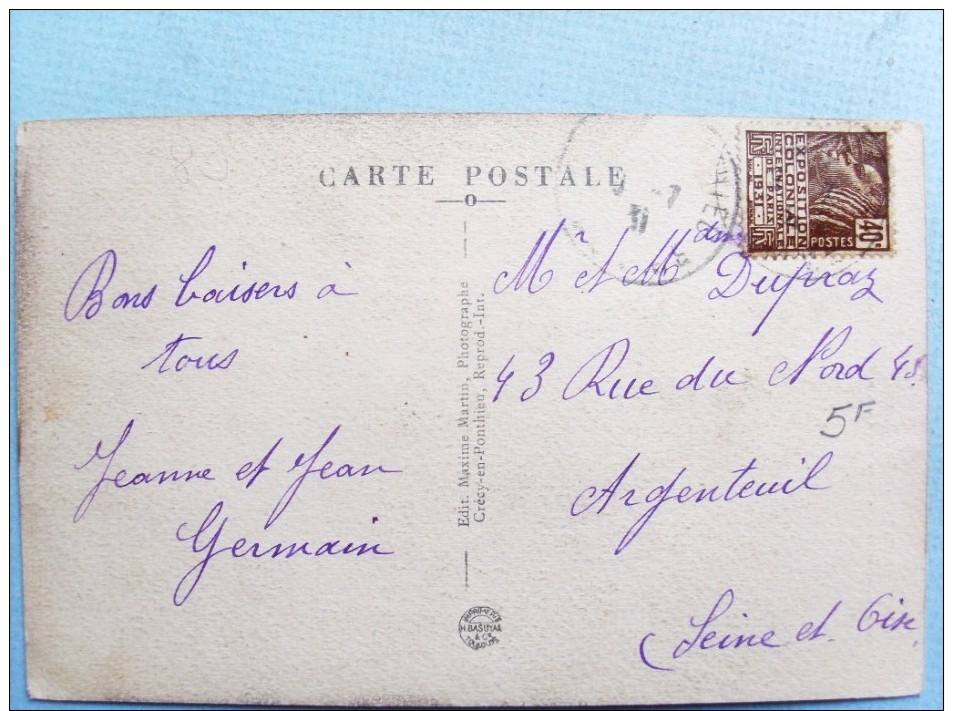 CARTE POSTALE
Bons baisers à
tous
Jeanne et Jean
Germain
Edit. Maxime Martin, Photographe
Crécy-en-Ponthieu, Reprod.-Int.
IMPRIMERIE
H. BASUYAU
& Cie
TOULOUSE
EXPOSITION
COLONIALE
INTERNATIONALE
DE PARIS
1931
POSTES
40c
Mr et Mdme
Dupraz
43 Rue du Nord 43
5F
Argenteuil
Seine et Oise